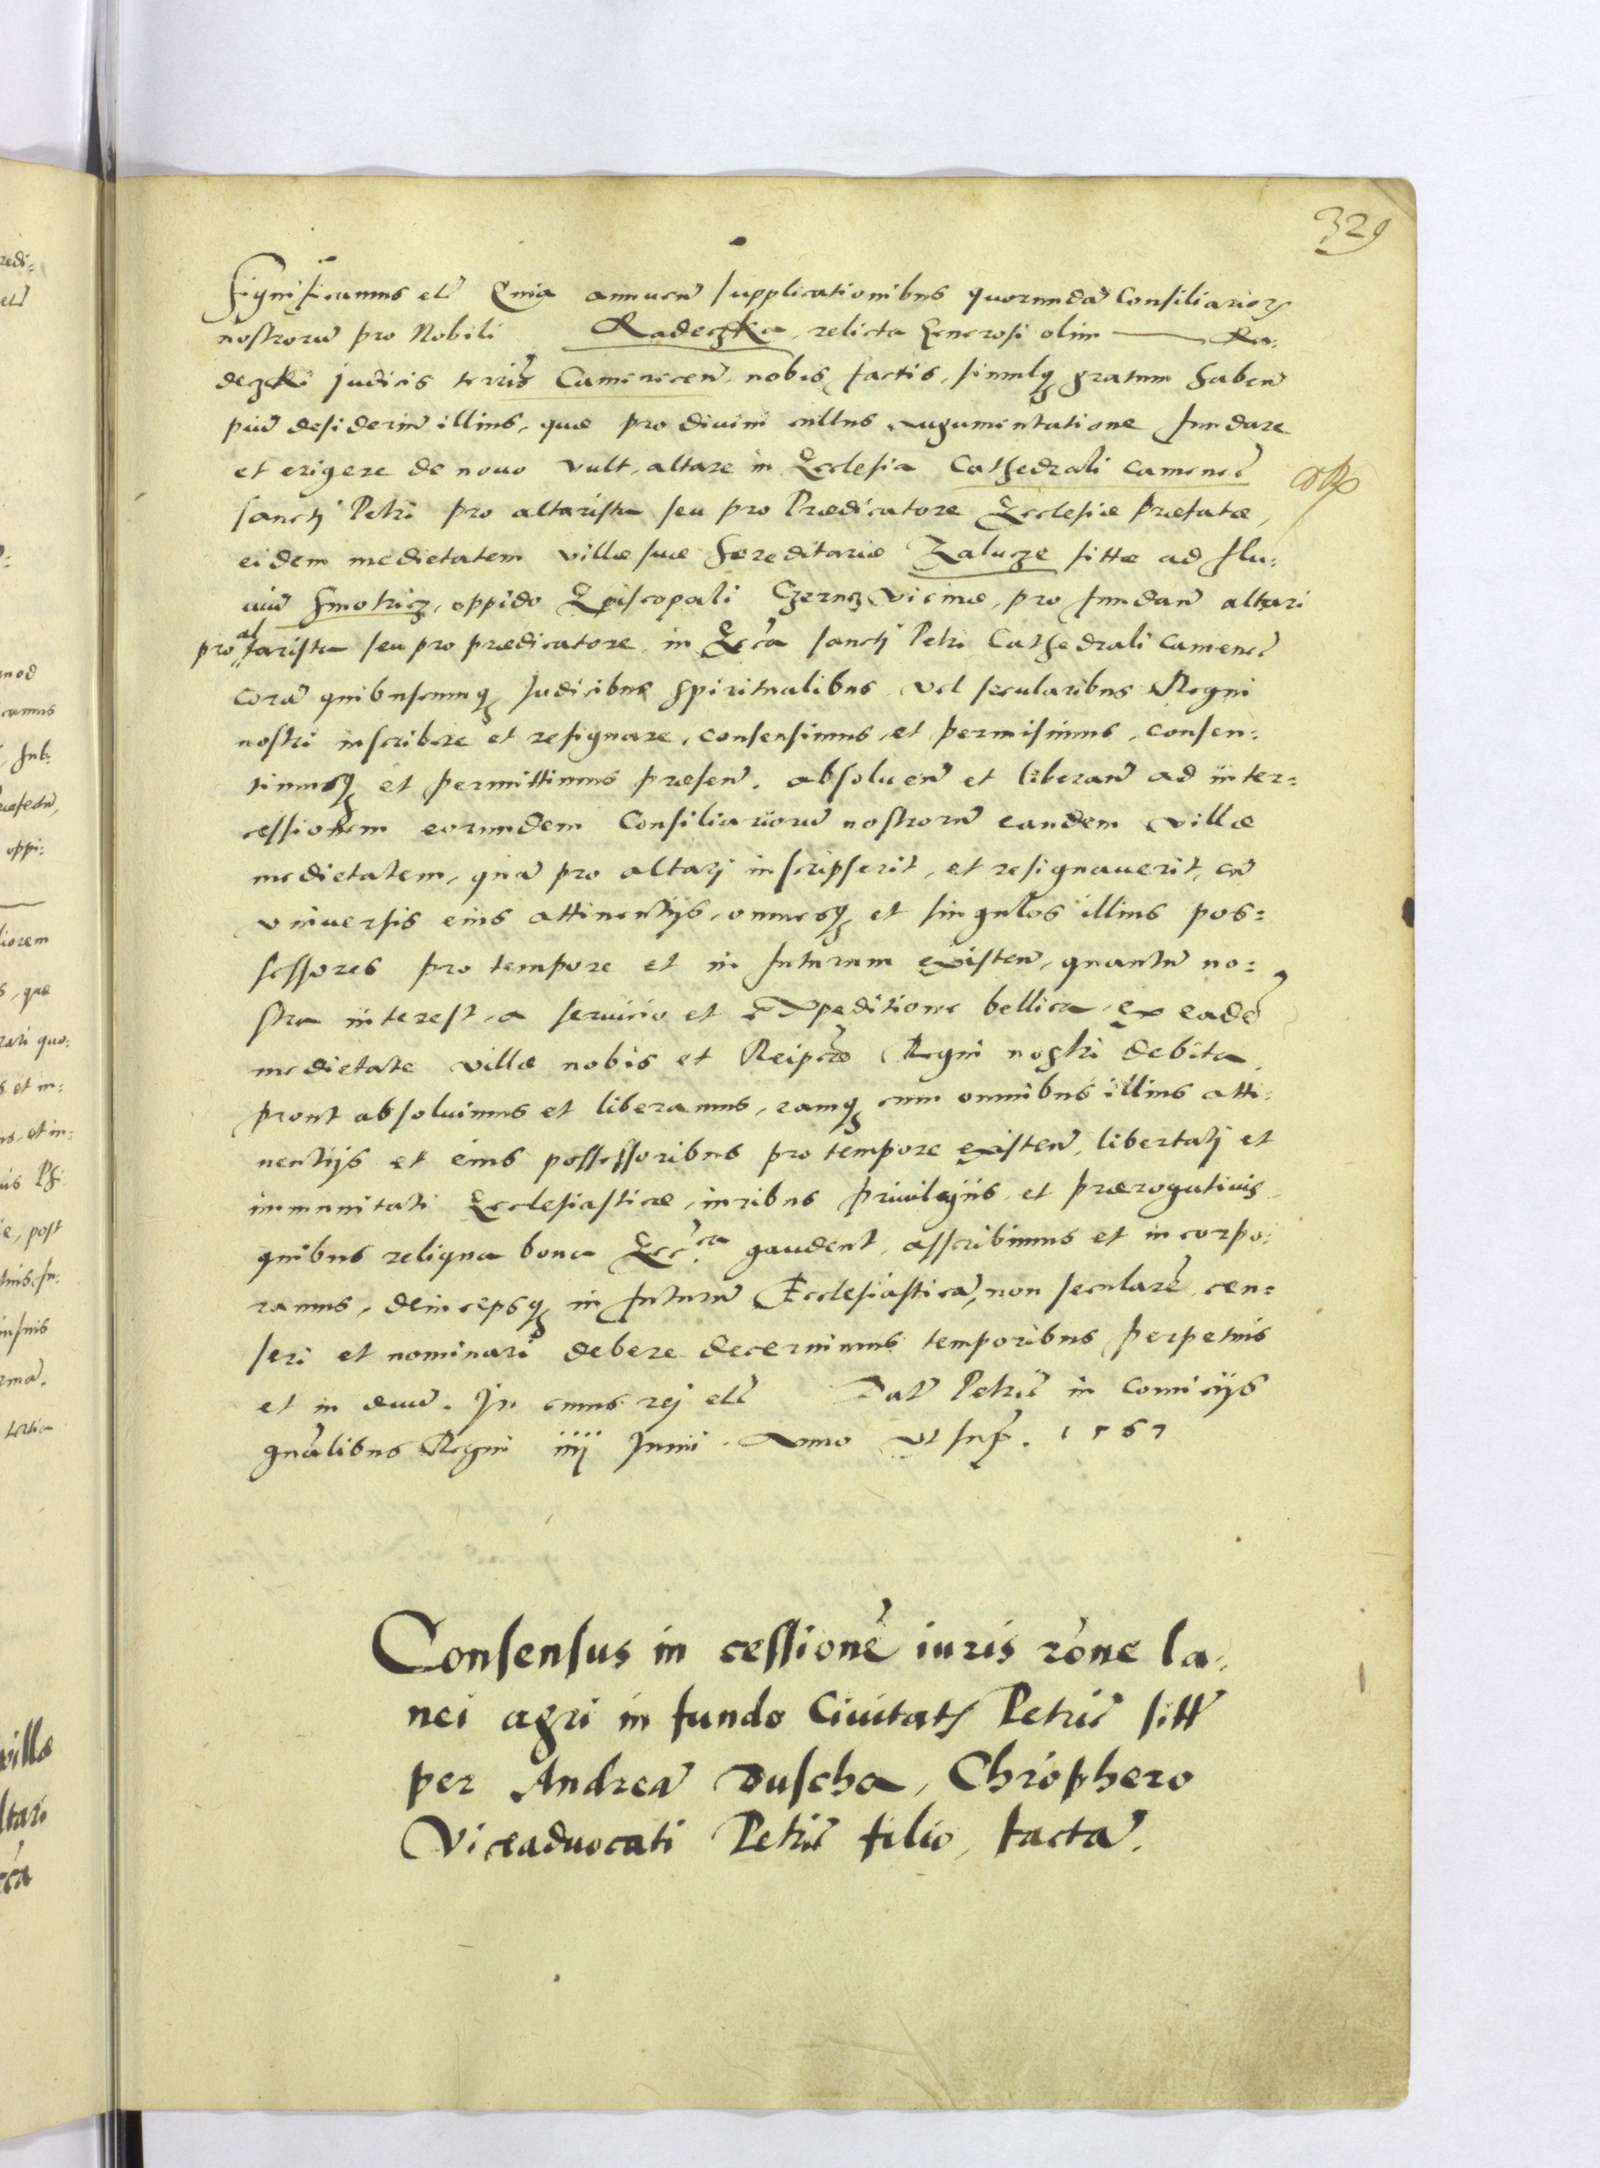 329
Significamus etc̃ Quia annuen̄ supplicationibus quorundā Consiliarioꝝ
nostrorū pro Nobili Radeczka, relicta Generosi olim — Ra-
deczki judicis terris̃ Camenecen̄, nobis factis, simulqꝫ gratum haben̄
piū desideriū illius, quæ pro divini cultus augumentatione fundare
et erigere de nouo vult, altare in Ecclesia Cathedrali camenec̃
sancti Petri pro altarista seu pro Prædicatore Ecclesiæ Præfatæ,
eidem medietatem villæ suæ hæreditariæ Zalucze sittæ ad flu-
uiū Smotricz, oppido Episcopali Czerncz vicinæ, pro fundan̄ altari
pro altarista seu pro prædicatore in Eccᷓa sancti Petri Cathedrali Camenec̃
corā quibuscunqꝫ Judicibus spiritualibus vel secularibus Regni
nostri inscribere et resignare, consensimus et permisimus, consen-
timusqꝫ et permittimus præsen̄. absoluen̄ et liberan̄ ad inter-
cessionem eorundem Consiliariorū nostrorū eandem villæ
medietatem, quā pro altarj inscripserit, et resignauerit, cū
vniuersis eius attinentijs, omnesqꝫ et singulos illius pos-
sessores pro tempore et in futurum existen̄, quantū no-
stra interest, a seruicio et expeditione bellica ex eadē
medietate villæ nobis et Reipcæ̃ Regni nostri debita,
prout absoluimus et liberamus, eamqꝫ cum omnibus illius atti-
nentijs et eius possessoribus pro tempore existen̄, libertatj et
immunitati Ecclesiasticæ, iuribus priuilegijs et prærogatiuis
quibus reliqua bona Eccᷓca gaudent, asscribimus et incorpo-
ramus, deincepsqꝫ in futurū Ecclesiasticā, non secularē cen-
seri et nominari debere decernimus temporibus perpetuis
et in æuū. In cuius rej etc̃ Dat̃ Petric̃ in comicijs
gnāalibus Regni iiij Junii. Anno vt supr̃. 1567
Consensus in cessionē iuris rōne la-
nei agri in fundo Ciuitatꝭ Petric̃ sitt̃
per Andreā Duscha, Chrophero
Viceaduocati Petric̃ filio, factā.